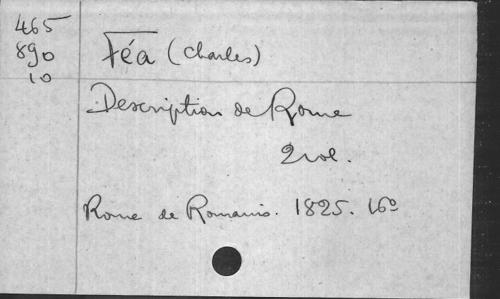 465
890
10
Féa (Charles)
Description de Rome
2 vol.
Rome de Romanis. 1825. 16°